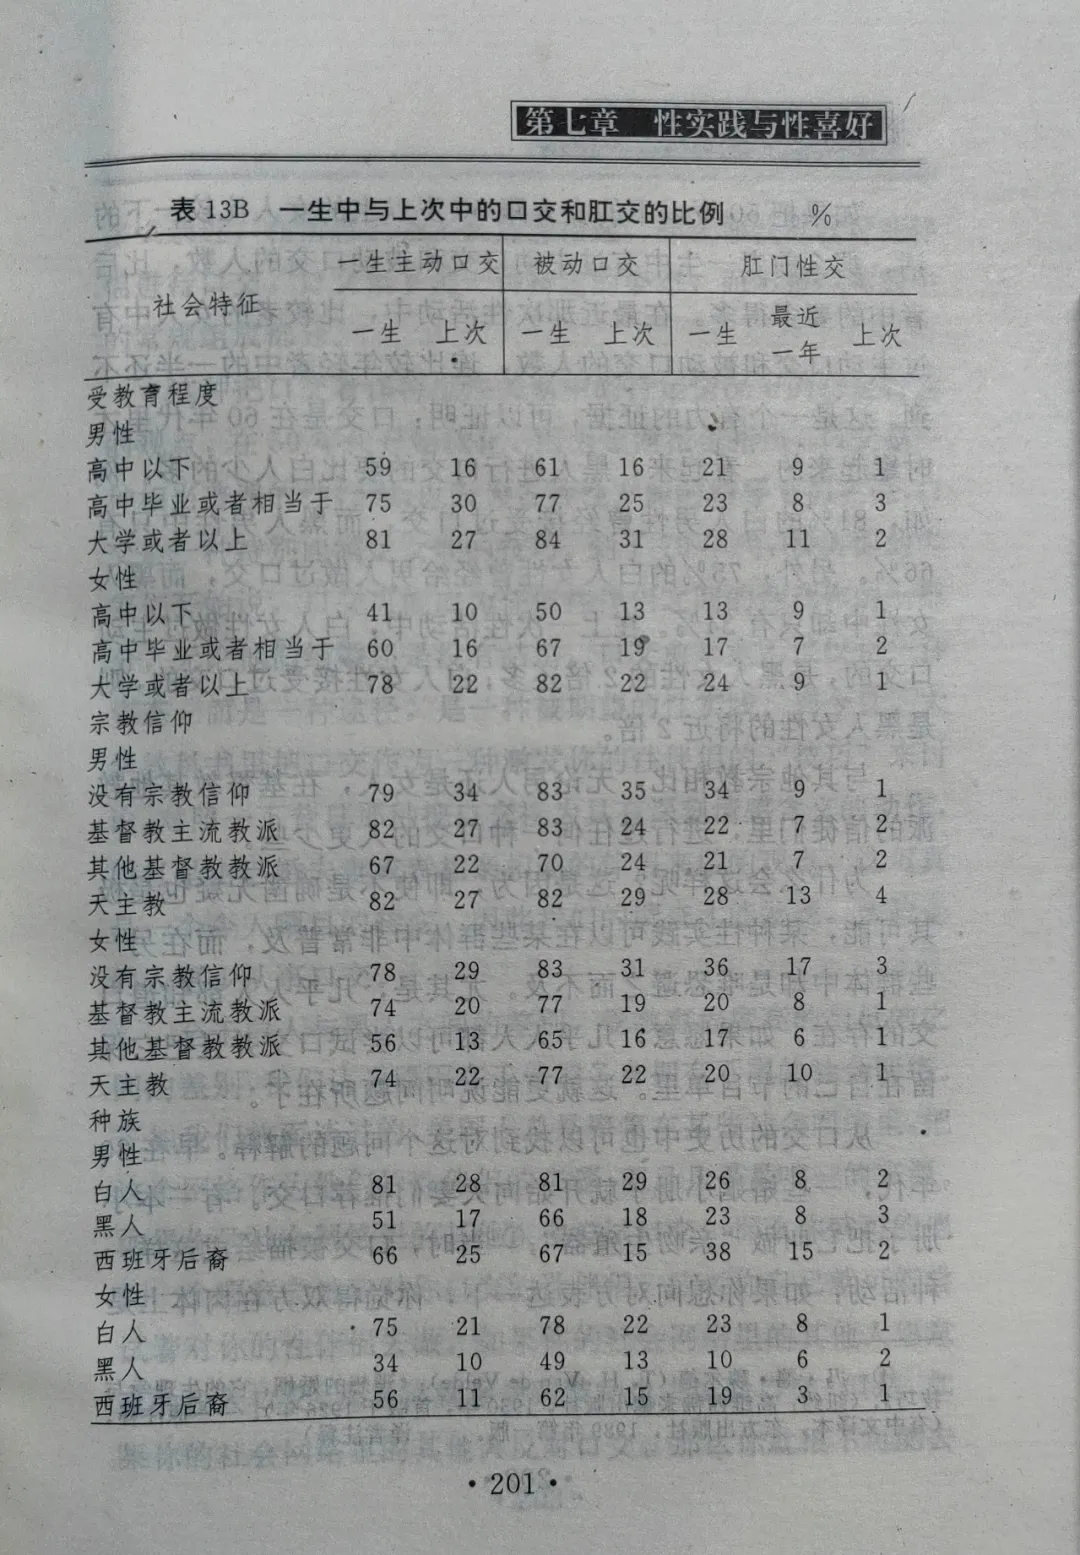 第七章 性实践与性喜好
表 13B 一生中与上次中的口交和肛交的比例 %
社会特征 一生主动口交 被动口交 肛门性交
一生 上次 一生 上次 一生 最近一年 上次
受教育程度
男性
高中以下 59 16 61 16 21 9 1
高中毕业或者相当于 75 30 77 25 23 8 3
大学或者以上 81 27 84 31 28 11 2
女性
高中以下 41 10 50 13 13 9 1
高中毕业或者相当于 60 16 67 19 17 7 2
大学或者以上 78 22 82 22 24 9 1
宗教信仰
男性
没有宗教信仰 79 34 83 35 34 9 1
基督教主流教派 82 27 83 24 22 7 2
其他基督教教派 67 22 70 24 21 7 2
天主教 82 27 82 29 28 13 4
女性
没有宗教信仰 78 29 83 31 36 17 3
基督教主流教派 74 20 77 19 20 8 1
其他基督教教派 56 13 65 16 17 6 1
天主教 74 22 77 22 20 10 1
种族
男性
白人 81 28 81 29 26 8 2
黑人 51 17 66 18 23 8 3
西班牙后裔 66 25 67 15 38 15 2
女性
白人 75 21 78 22 23 8 1
黑人 34 10 49 13 10 6 2
西班牙后裔 56 11 62 15 19 3 1
·201·